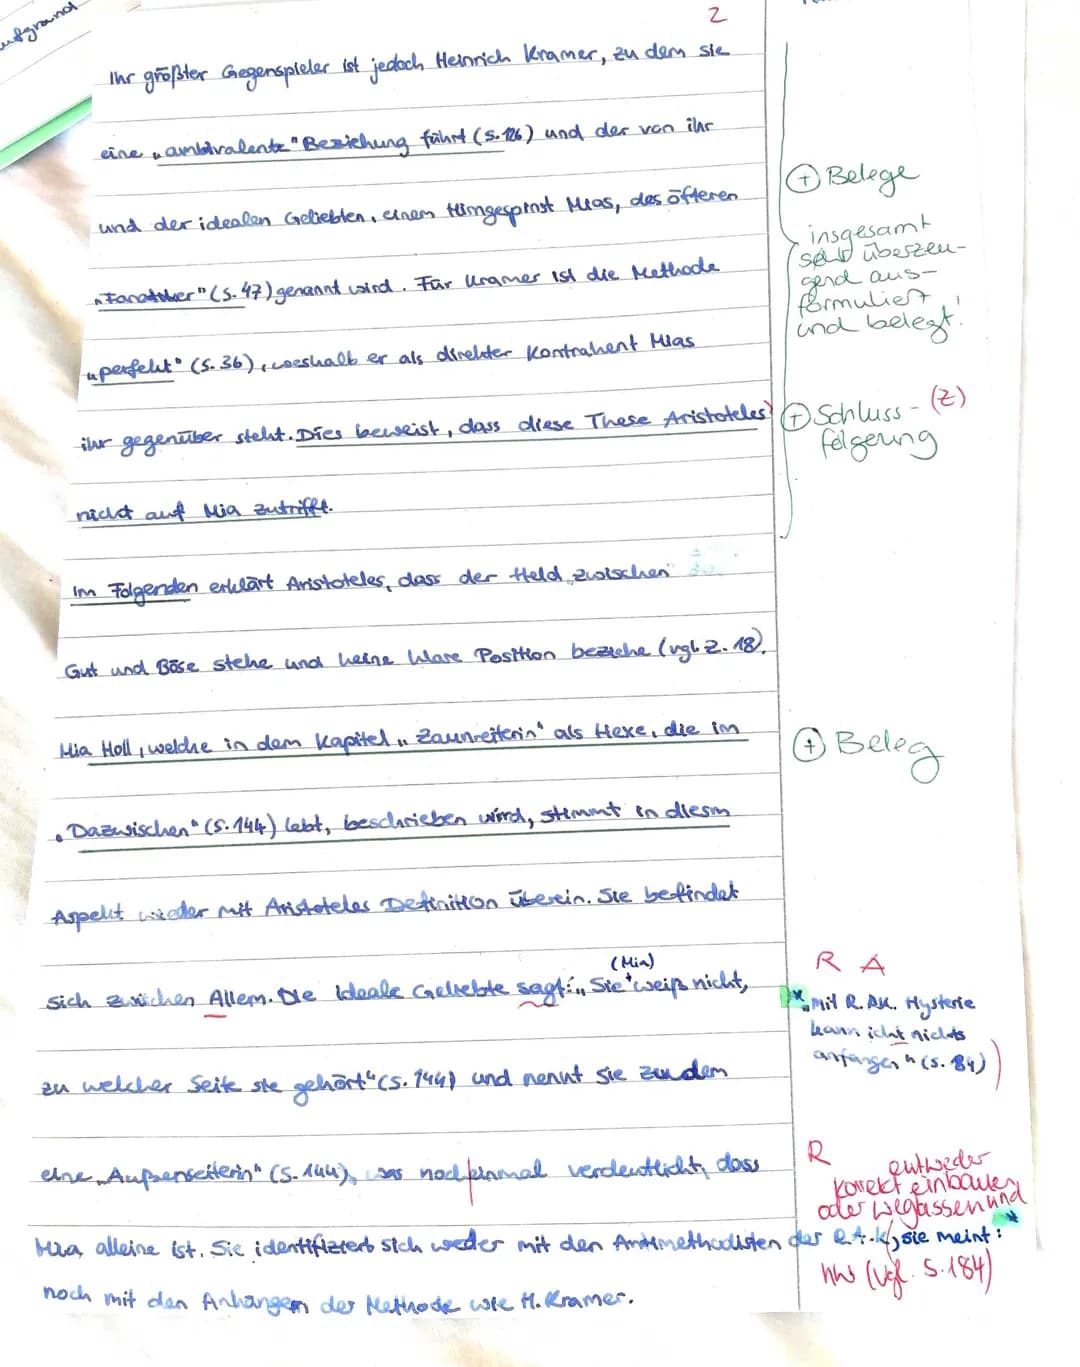 ufgrund
2
Ihr größter Gegenspieler ist jedoch Heinrich Kramer, zu dem sie
eine „ambivalente" Beziehung führt (S. 126) und der von ihr
und der idealen Geliebten, einem Hirngespinst Mias, des öfteren
„Fanatiker" (S. 47) genannt wird. Für Kramer ist die Methode
„perfekt" (S. 36), weshalb er als direkter Kontrahent Mias
ihr gegenüber steht. Dies beweist, dass diese These Aristoteles'
nicht auf Mia zutrifft.
Im Folgenden erklärt Aristoteles, dass der Held zwischen
Gut und Böse stehe und keine klare Position beziehe (vgl. Z. 18).
Mia Holl, welche in dem Kapitel „Zaunreiterin" als Hexe, die im
„Dazwischen" (S. 144) lebt, beschrieben wird, stimmt in diesm
Aspekt wieder mit Aristoteles Definition überein. Sie befindet
sich zwischen Allem. Die ideale Geliebte sagt: „Sie weiß nicht,
(Mia)
zu welcher Seite sie gehört" (S. 144) und nennt sie zudem
eine „Außenseiterin" (S. 144), was nocheinmal verdeutlicht, dass
Mia alleine ist. Sie identifiziert sich weder mit den Antimethodisten der R.A.K, sie meint:
noch mit den Anhängern der Methode wie H. Kramer.
+ Belege
insgesamt
sehr überzeu-
gend aus-
formuliert
und belegt!
+ Schluss- (Z)
folgerung
+ Beleg
R A
* „Mit R. AK. Hysterie
kann ich nichts
anfangen" (S. 84)
R entweder
korrekt einbauen
oder weglassen und
(vgl. S. 184)